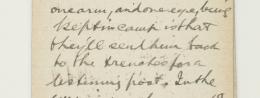 one arm, and one eye, being
kept in camp is that
they'll send him back
to the trenches for a
listening post. In the